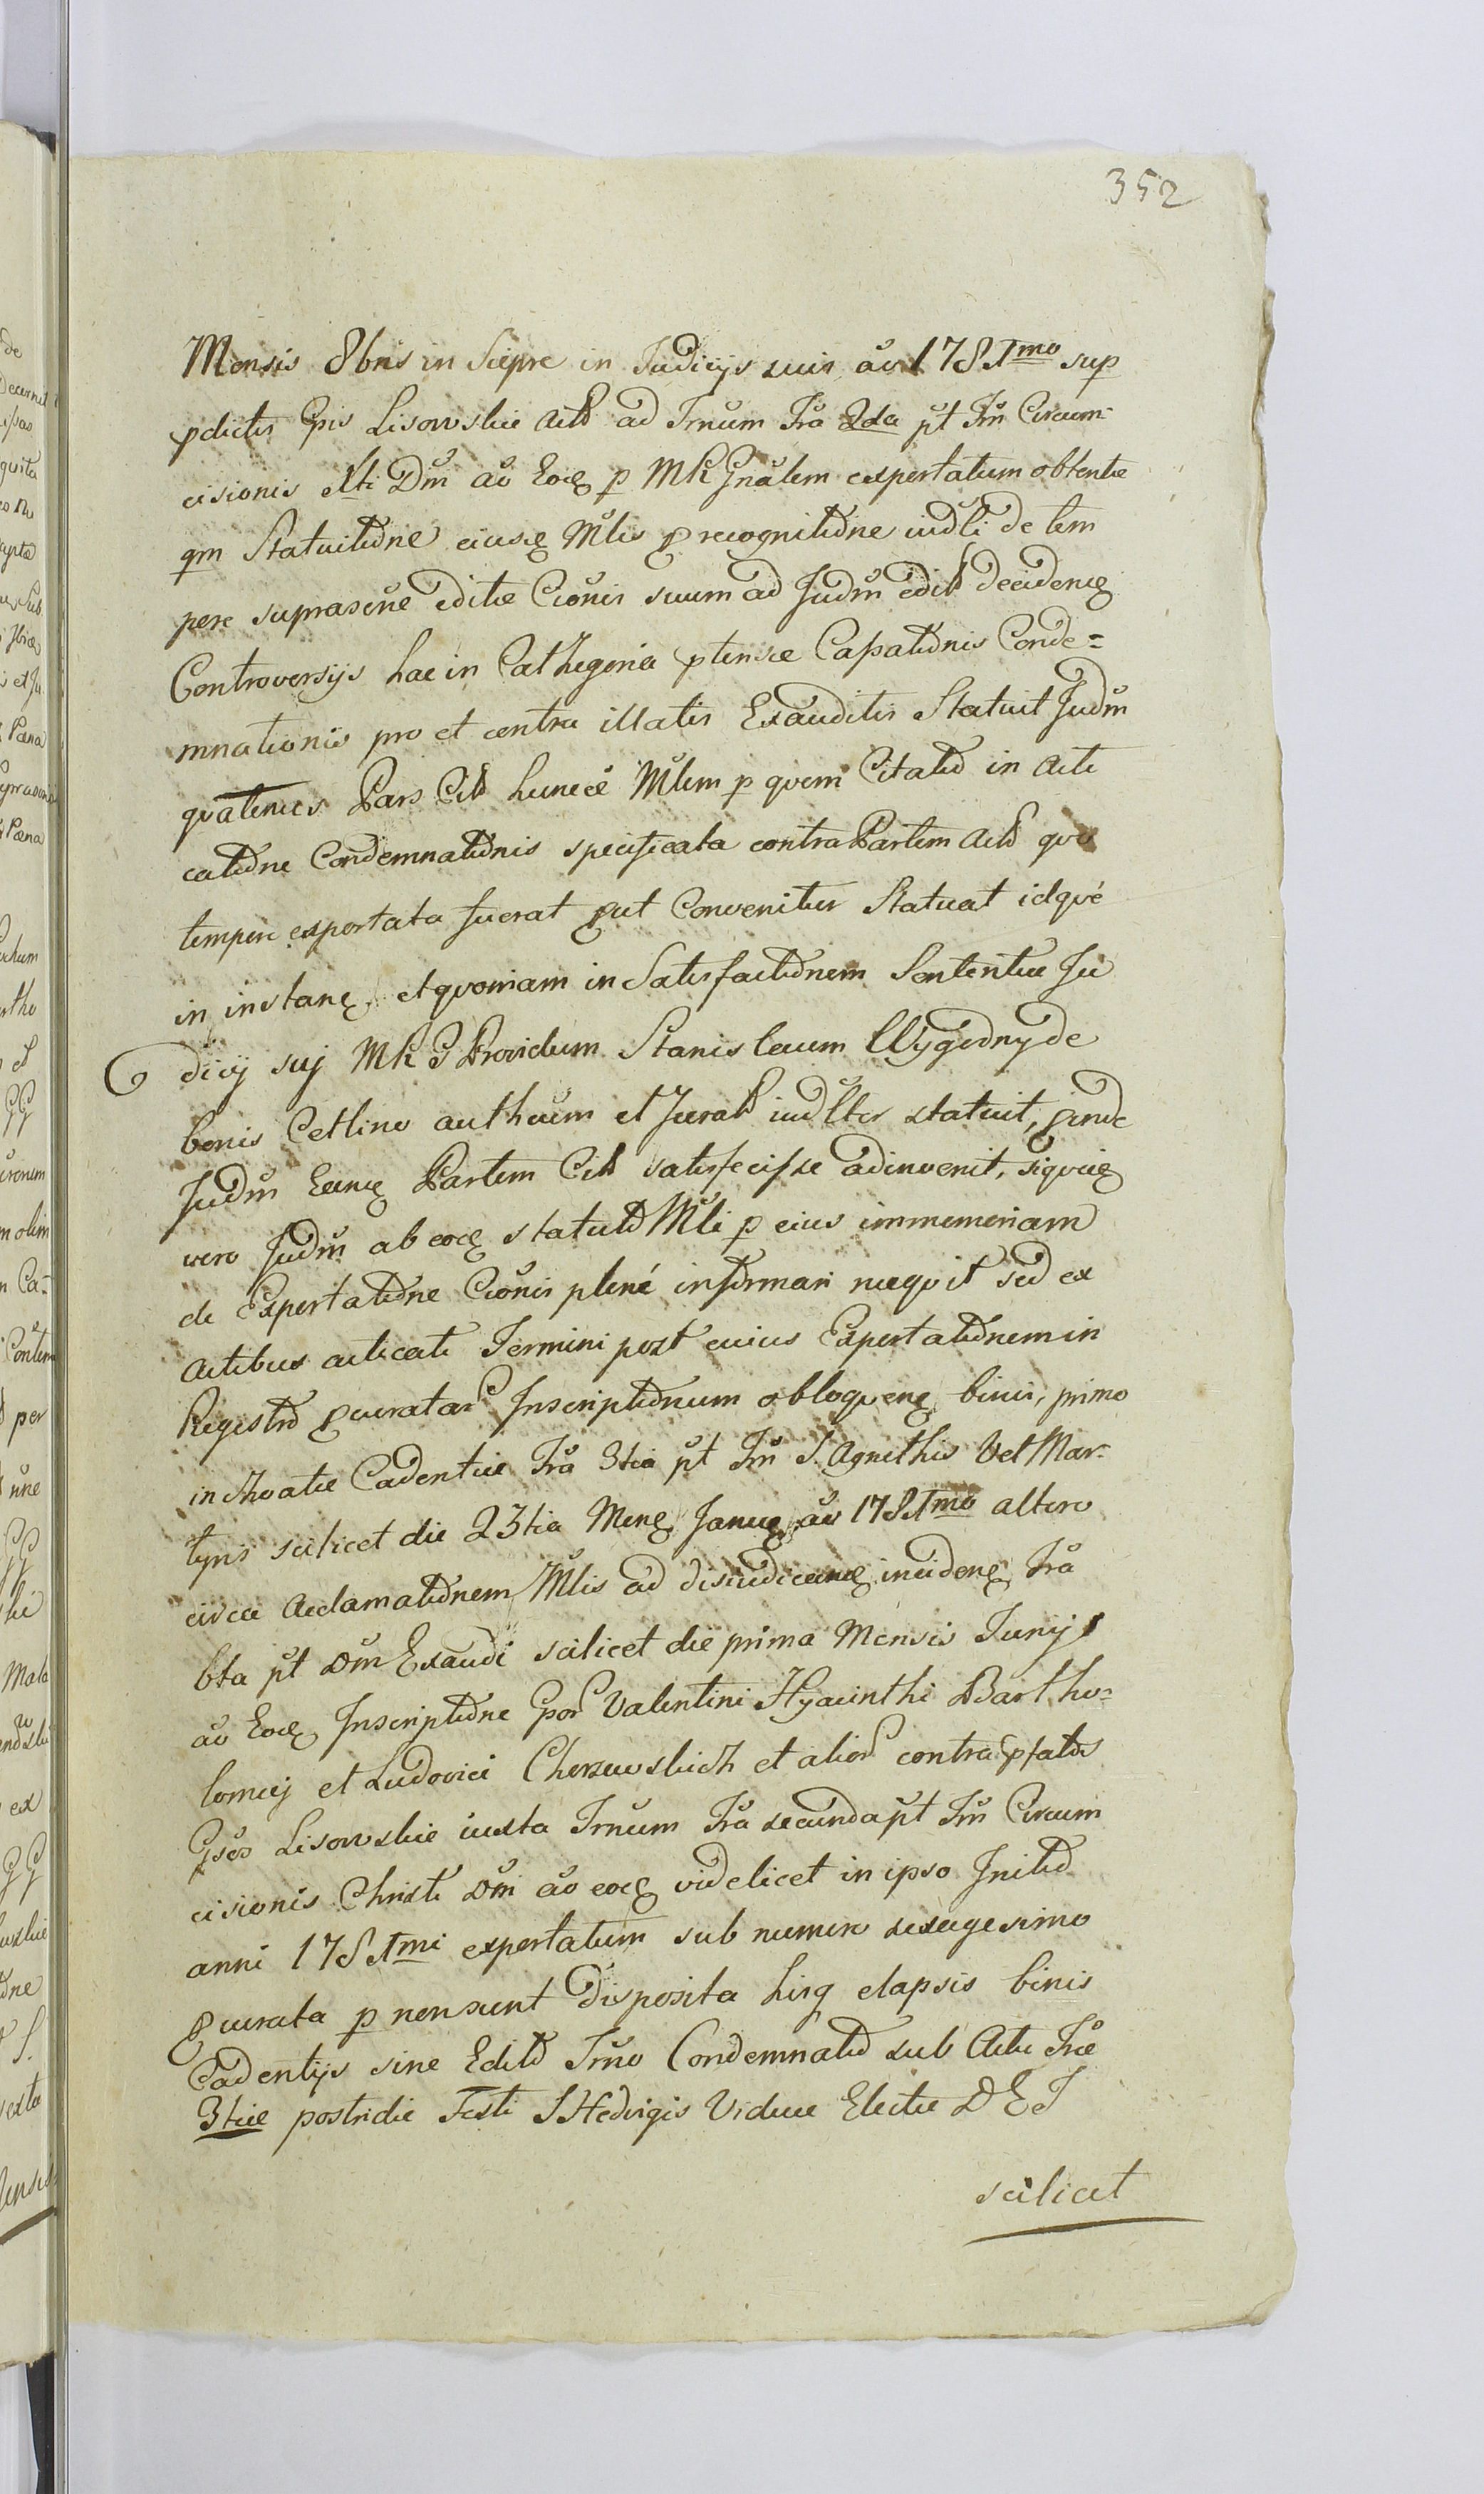 352
Mensis 8bris in Scepre in Judicijs suis ao 178Imo sup
pdictis Gsis Lisowskie Acto ad Trnum Fra 2da pt Fm Circum
cisionis Xti Dni ao Eoq p MR Gnalem exportatum obtentæ
qm Statuitione eiusq Mlis p recognitione iudli de tem
pore suprascne editæ Cionis suum ad Judm edit decidenq
Controversijs hac in Cathegoria ptensæ Cassationis Conde=
mnationis pro et contra illatis Exauditis Statuit Judm
quatenus Pars Cit huncce Mlem p quem Citatio in Acti
catione Condemnationis specificata contra Partem Act quo
tempore exportata fuerat put Convenitur Statuat idqué
in instanq et quoniam in Satisfactionem Sententiæ Ju
dicij sui MRG Providum Stanislaum Wygodny de
bonis Cetlino authcum et Jurat iudlter statuit, pinde
Judm Eanq Partem Cit satisfecisse adinvenit, siquiq
vero Judm ab eoq statuto Mli p eius immemoriam
de Exportatione Cionis plené informari nequit sed ex
Actibus acticati Termini post cuius Exportationem in
Registro pcuratar Inscriptionum obloquenq binis, primo
in Cadentiæ Fra 3tia pt Fm S. Agnethis V et Mar-
tyris scilicet die 23tia Menq Januq ao 178Imo altero
circa Acclamationem Mlis ad disiudicanq incidenq Fra
6ta pt Dm Exaudi scilicet die prima Mensis Junij
ao Eoq Inscriptione Gsor Valentini Hyacinthi Bartho=
lomæj et Ludovici et alior contra pfatos
Gsos Lisowskie iuxta Trnum Fra secunda pt Fm Circum
cisionis Christi Dni ao eoq videlicet in ipso Initio
anni 178Imi exportatum sub numero sexagesimo
pcurata p non sunt disposita hisq elapsis binis
Cadentijs sine Edito Trno Condemnatio sub Actu Fræ
3tiæ postridie Festi S Hedvigis Viduæ Electæ D E I
scilicet